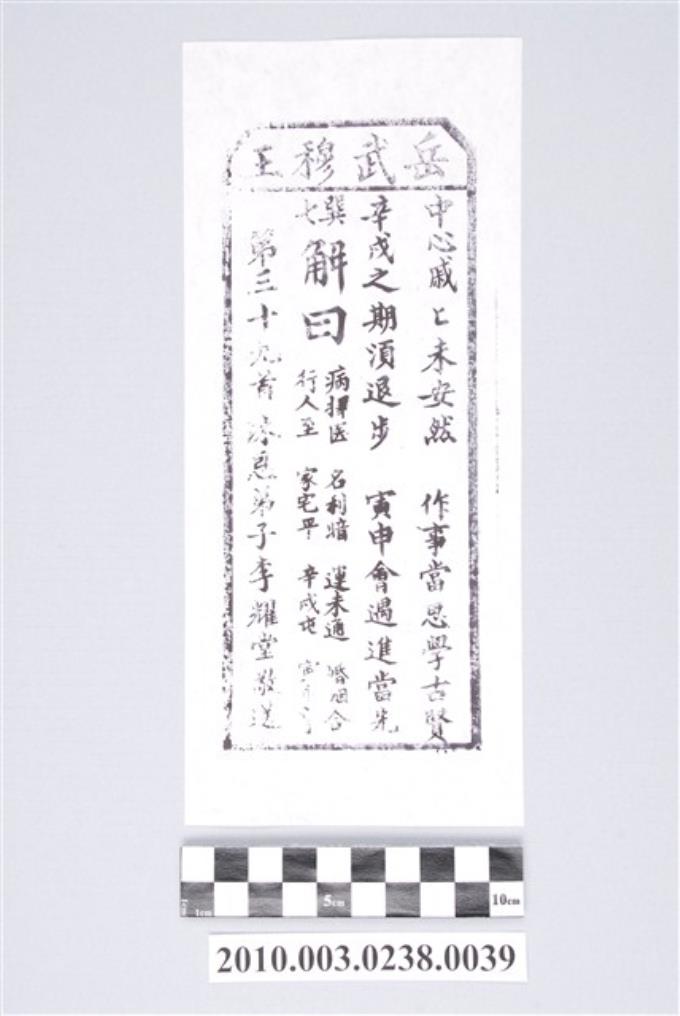 岳武穆王
中心戚〻未安然　作事當思學古賢
辛戌之期須退步　寅申會遇進當先
巽七
解曰
病擇医　名利暗　運未通　婚姻合
行人至　家宅平　辛戌屯　寅
第三十九首　沐恩弟子李耀堂敬送
1cm
5cm
10cm
2010.003.0238.0039